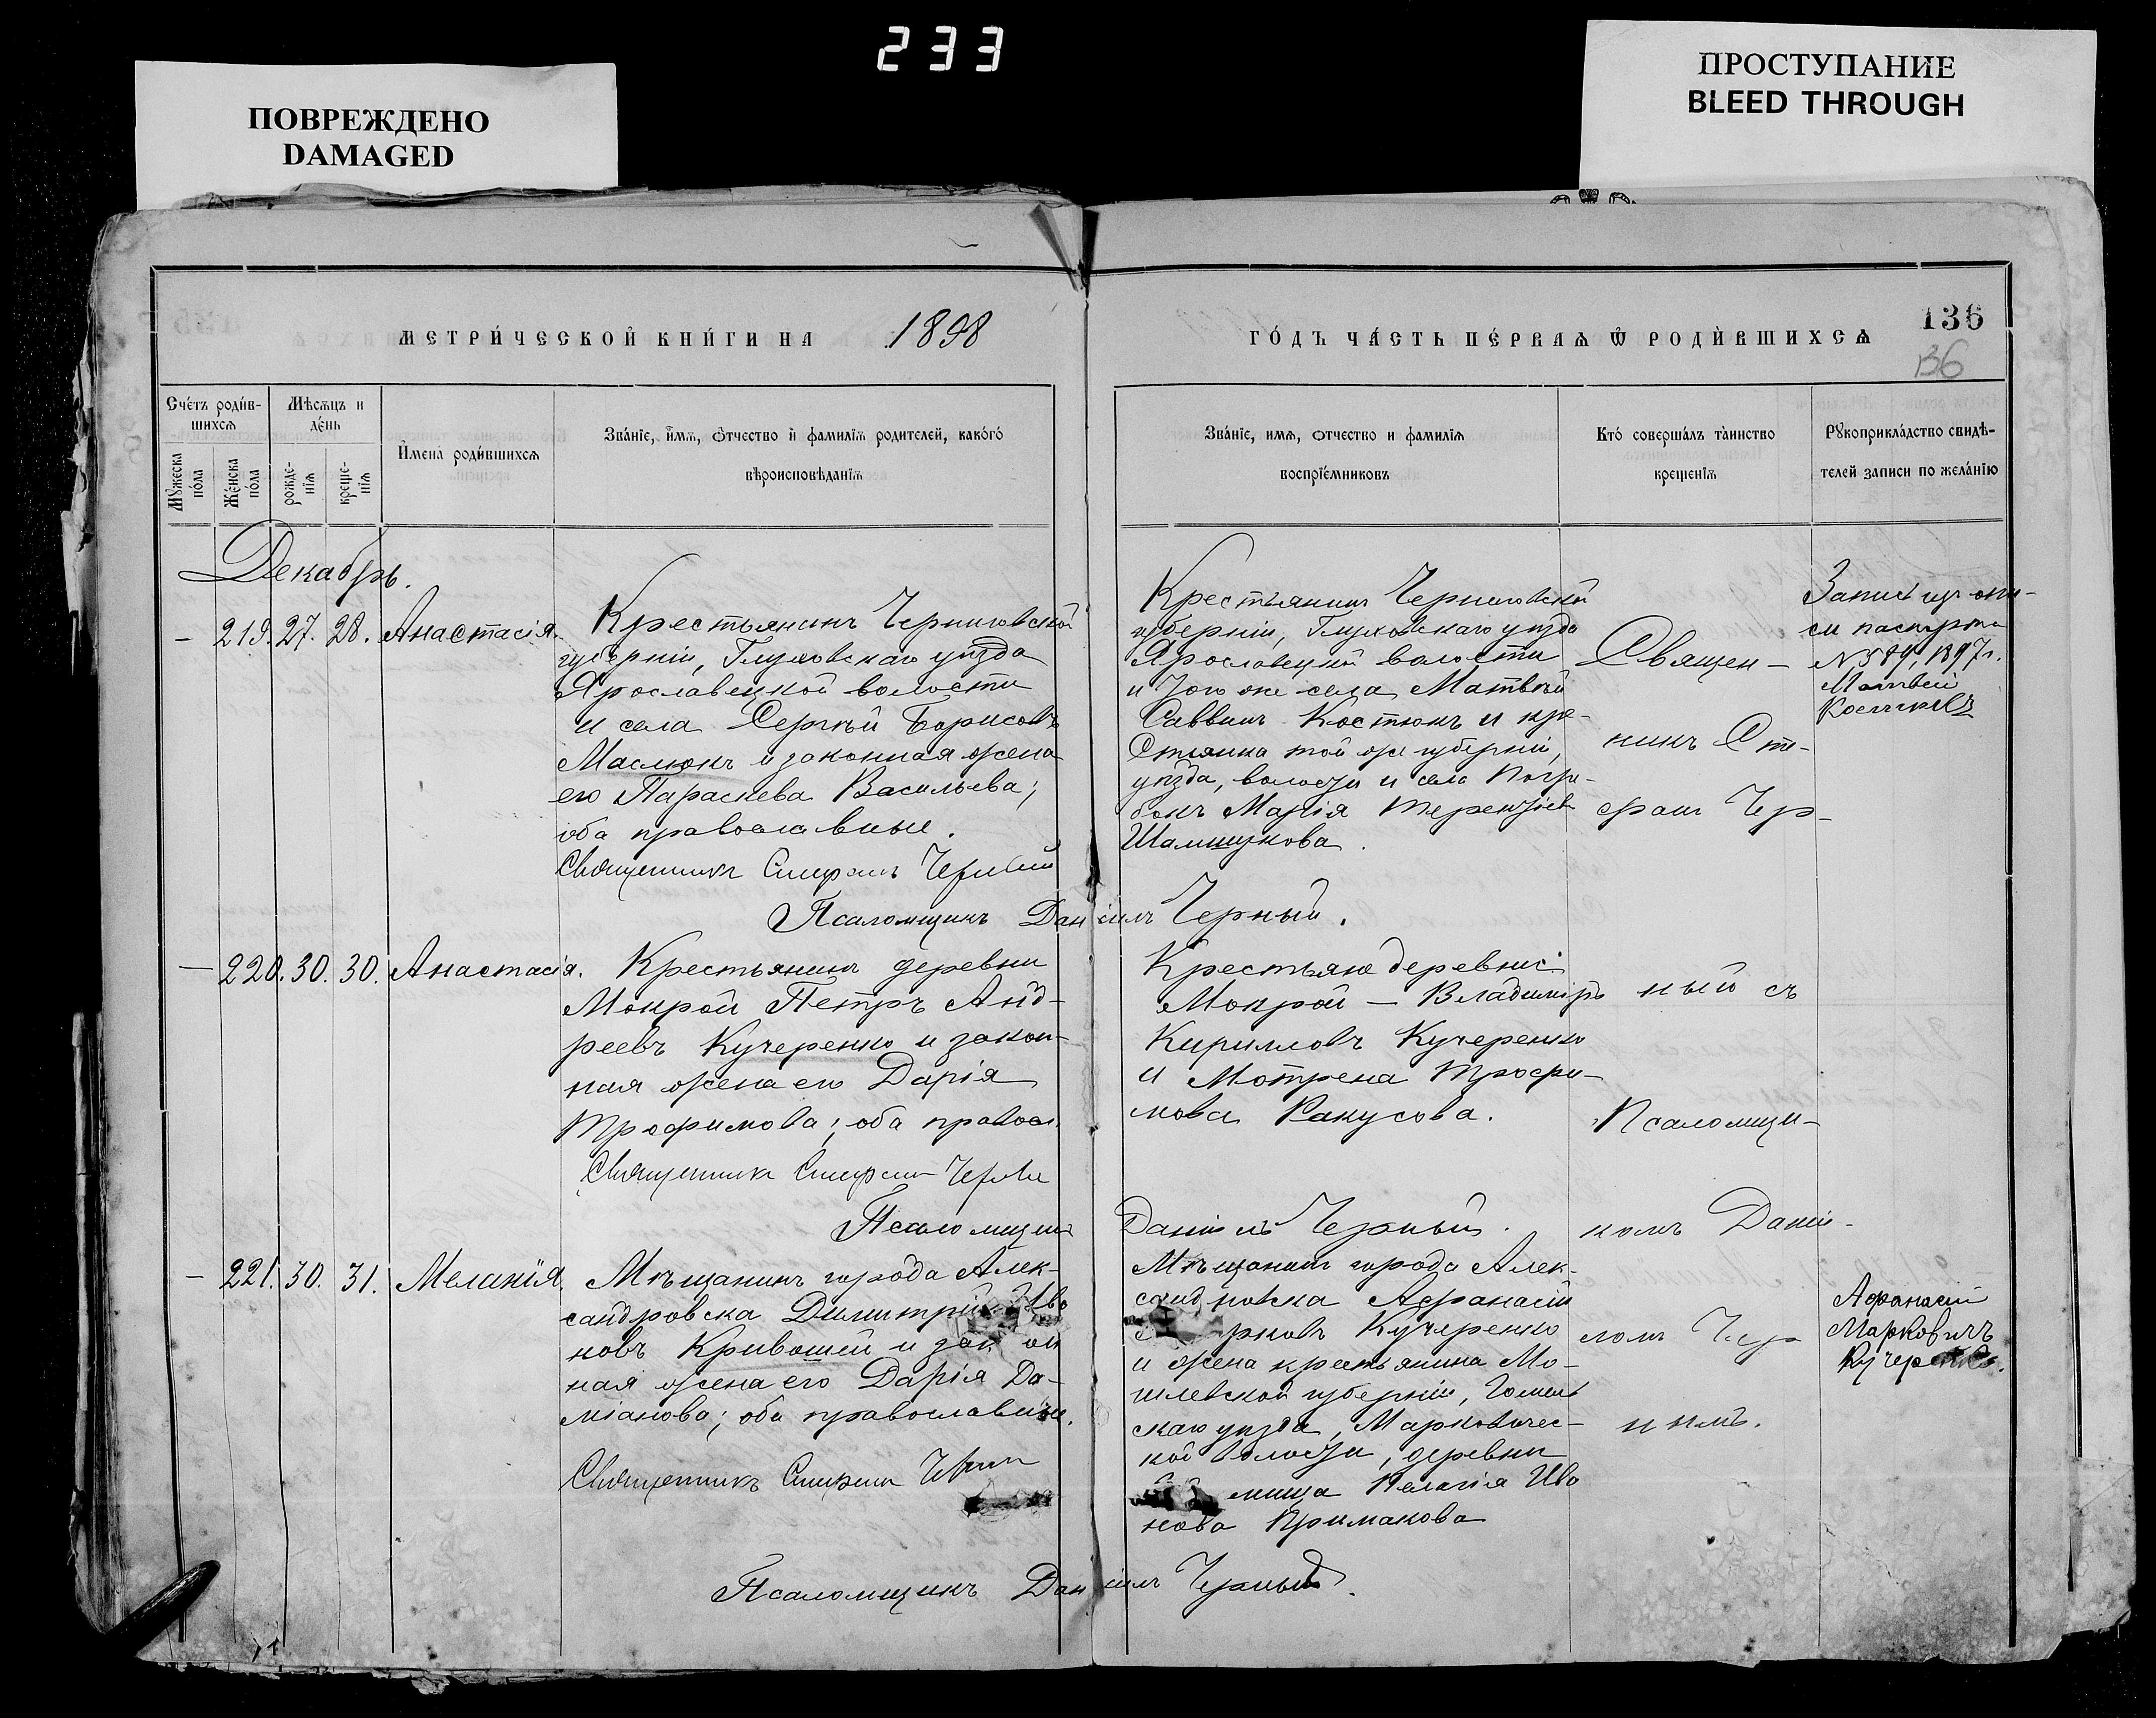 233
ПОВРЕЖДЕНО
DAMAGED
ПРОСТУПАНИЕ
BLEED THROUGH
МЕТРИ́ЧЕСКОЙ КНИ́ГИ НА 1898
ГО́ДЪ ЧА́СТЬ ПЕ́РВАѦ Ѿ РОДИ́ВШИХСѦ
136
136
Сче́тъ роди́в-
шихсѧ
Мѣсѧцъ и
де́нь
Мꙋжеска
по́ла
Же́нска
по́ла
рожде-
нїѧ
креще-
нїѧ
И҆мена̀ роди́вшихсѧ
Зва́нїе, и҆́мѧ, ѻ҆́тчество и҆ фамилїѧ родителей, како́гѡ
вѣроисповѣданїѧ
Зва́нїе, имѧ, ѻтчество и фамилїѧ
воспрїе́мниковъ
Кто́ соверша́лъ та́инство
крещенїѧ
Рꙋкоприкла́дство свидѣ-
телей записи по жела́нїю
Декабрь.
– 219. 27. 28. Анастасія.
Крестьянинъ Черниговской
губерніи, Глуховскаго уѣзда
Ярославецкой волости
и села Сергѣй Борисовъ
Маслюкъ и законная жена
его Параскева Васильева;
оба православные.
Священникъ Стефанъ Черный
Псаломщикъ Даніилъ Черный.
Крестьянинъ Черниговской
губерніи, Глуховскаго уѣзда
Ярославецкой волости
и того же села Матвѣй
Саввинъ Костюкъ и кре-
стьянка той же губерніи,
уѣзда, волости и села Погре-
бокъ Марія Терентіев
Шамшукова.
Священ-
никъ Сте-
фанъ Чер-
ный съ
Псаломщи-
комъ Дані-
ломъ Чер
нымъ.
Матвей
— 220. 30. 30. Анастасія.
Крестьянинъ деревни
Мокрой Петръ Анд-
реевъ Кучеренко и закон-
ная жена его Дарія
Трофимова; оба правосл.
Священникъ Стефанъ Черный
Псаломщикъ Даніилъ Черный.
Крестьяне деревни:
Мокрой — Владиміръ
Кирилловъ Кучеренко
и Мотрена Трофи-
мова Ракусова.
– 221. 30. 31. Меланія.
Мѣщанинъ города Алек-
сандровска Димитрій Ива
новъ Кривошей и зак он
ная жена его Дарія Да-
міанова; оба православные.
Священникъ Стефанъ Черный
Псаломщикъ Даніилъ Черный.
Мѣщанинъ города Алек-
сандровска Афанасій
рковъ Кучеренко
и жена крестьянина Мо-
гилевской губерніи, Гомель
скаго уѣзда, Марковичес-
кой волости, деревни
Пелагія Ива
нова Примакова
Афанасій
Марковичъ
Кучеренко.